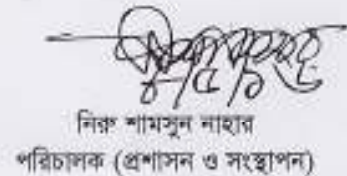 নিরু শামসুন নাহার
পরিচালক (প্রশাসন ও সংস্থাপন)